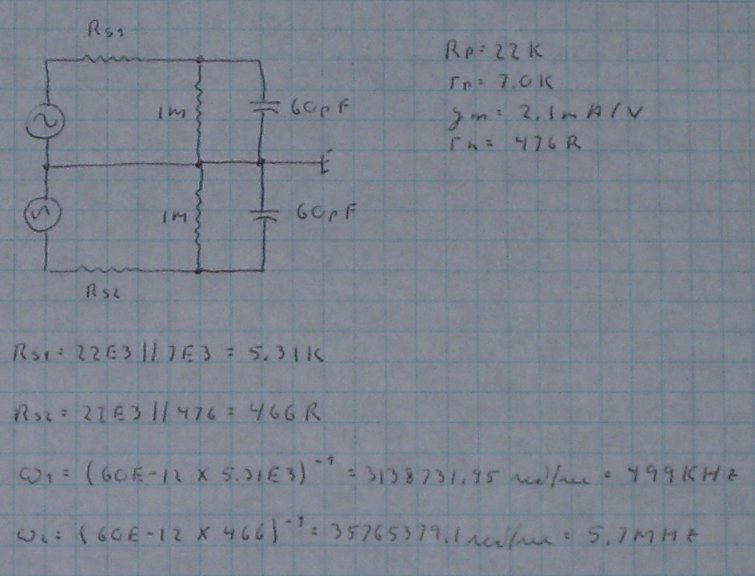 Rs1
1M
60pF
1M
60pF
Rs2
Rp = 22K
rp = 7.0K
gm = 2.1mA/V
rk = 476R
Rs1 = 22E3 // 7E3 = 5.31K
Rs2 = 22E3 // 476 = 466R
ω1 = (60E-12 x 5.31E3)⁻¹ = 3138731.95 rad/sec = 499KHz
ω2 = (60E-12 x 466)⁻¹ = 35765379.1 rad/sec = 5.7MHz